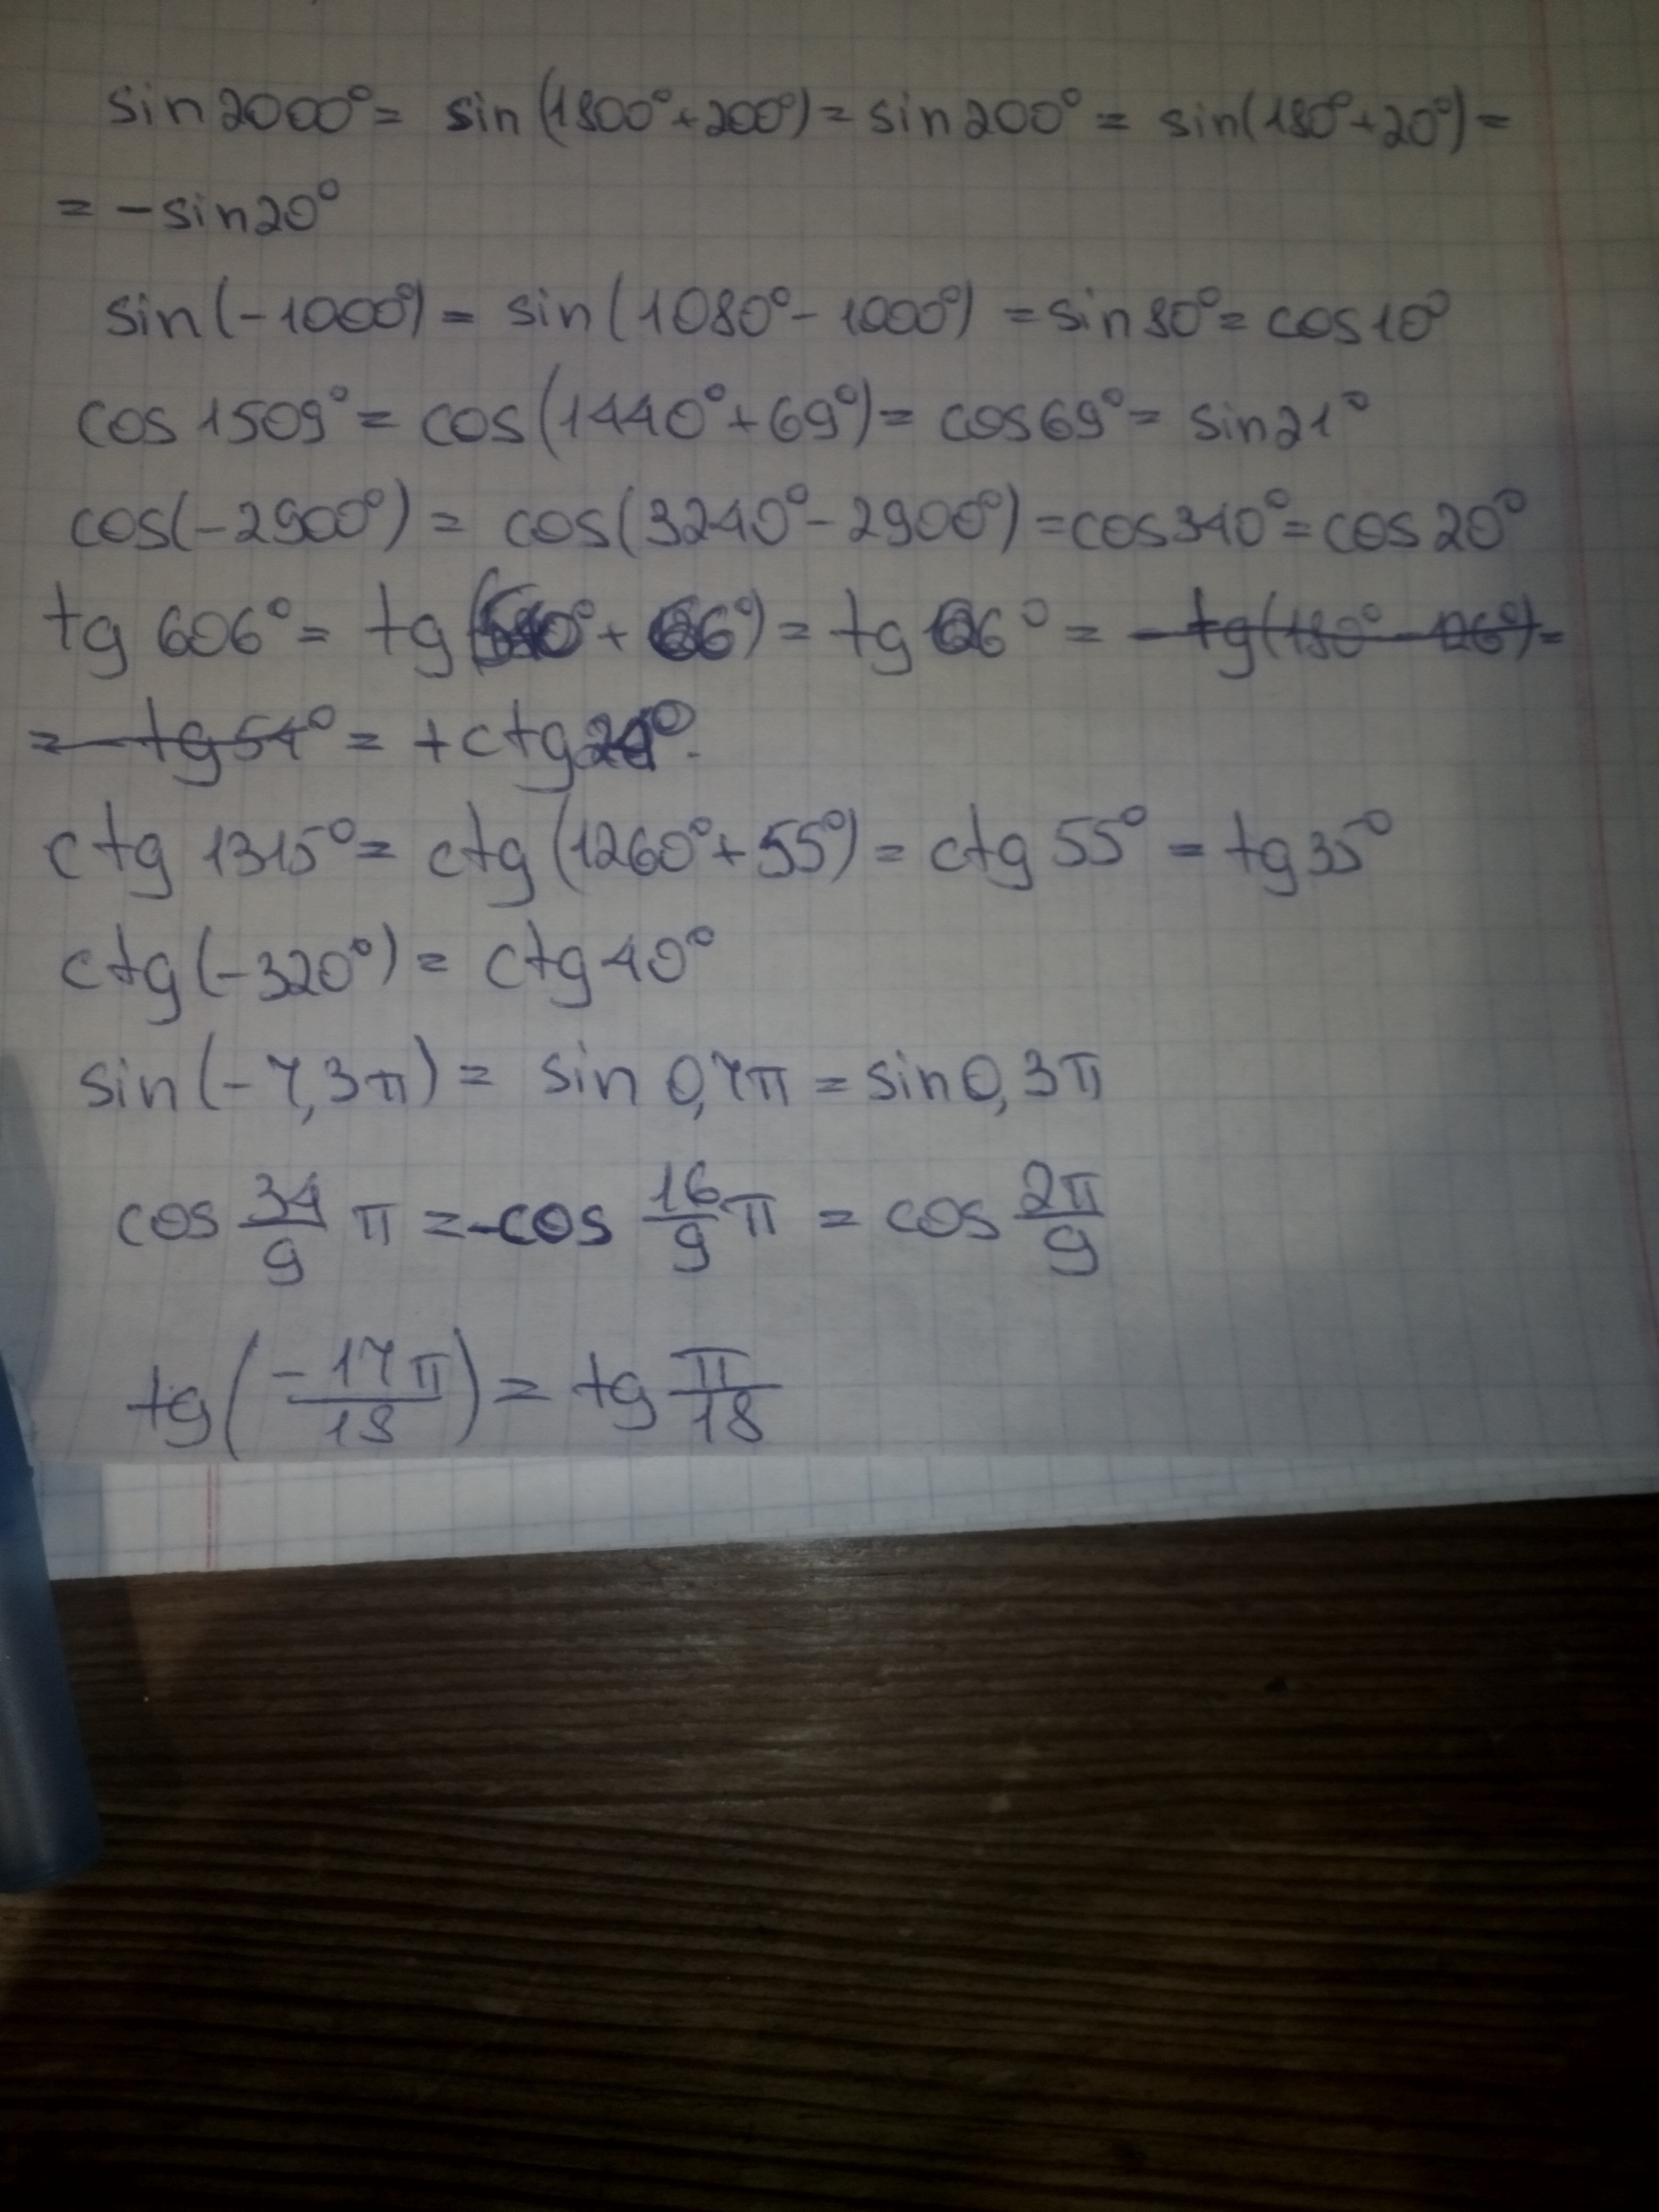 sin2000° = sin(1800°+200°) = sin200° = sin(180°+20°) =
= -sin20°
sin(-1000°) = sin(1080°-1000°) = sin80° = cos10°
cos1509° = cos(1440°+69°) = cos69° = sin21°
cos(-2900°) = cos(3240°-2900°) = cos340° = cos20°
tg 606° = tg(540°+66°) = tg 66° = -tg(180°-126°) =
= -tg54° = +ctg24°.
ctg 1315° = ctg(1260°+55°) = ctg 55° = tg35°
ctg(-320°) = ctg40°
sin(-7,3π) = sin 0,7π = sin0,3π
cos 34/9 π = -cos 16/9 π = cos 2π/9
tg(-17π/18) = tg π/18